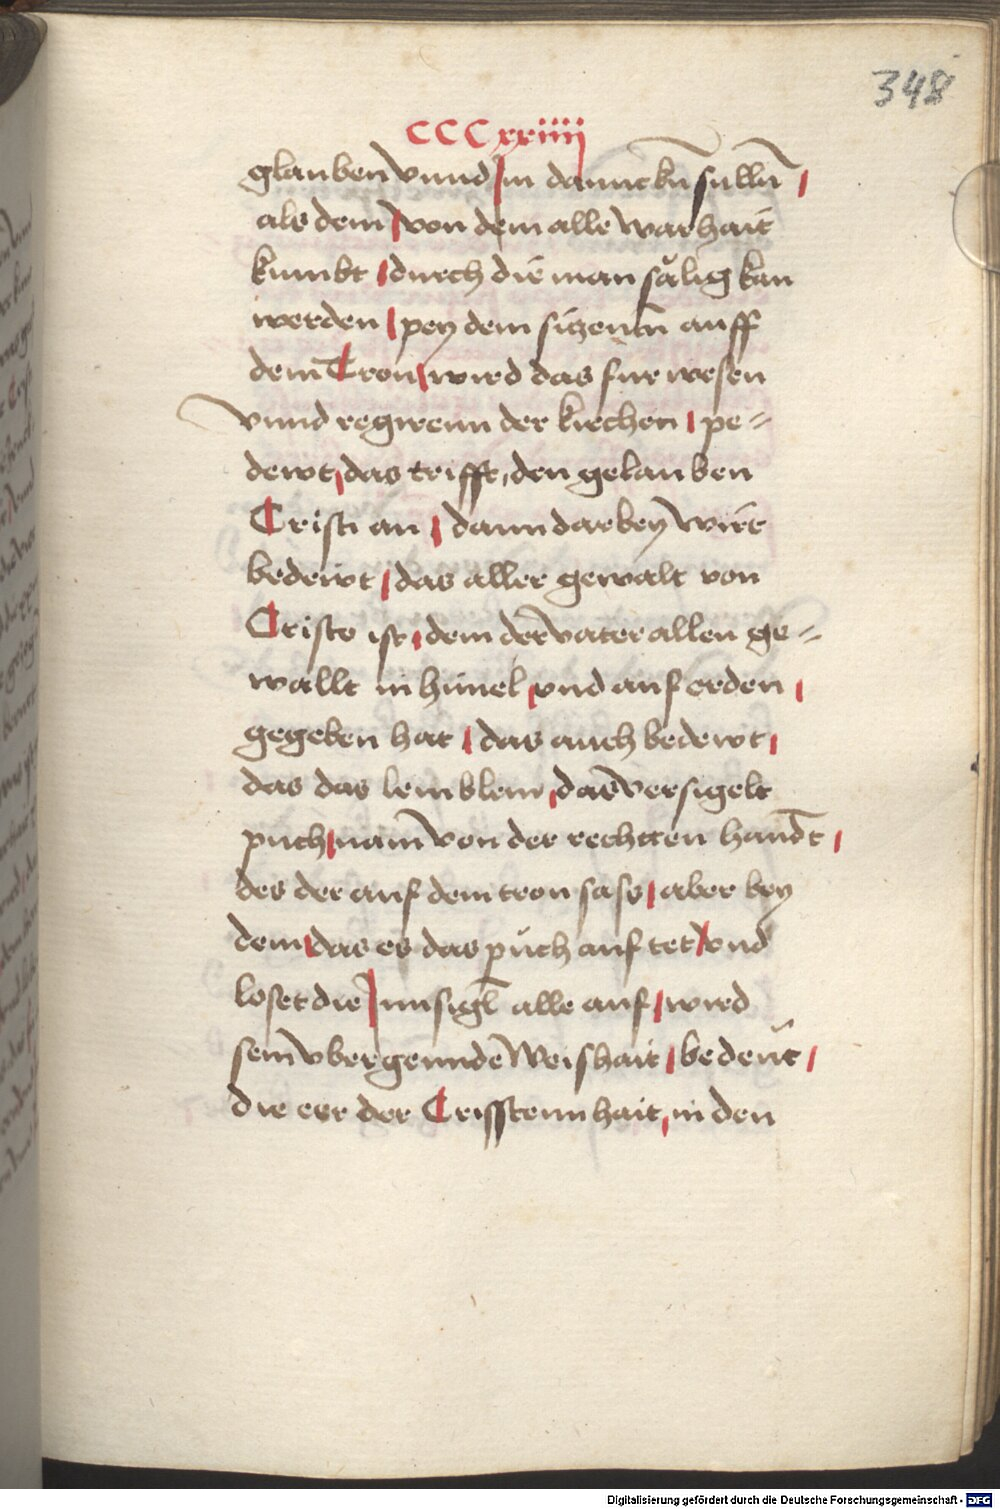 348
CCCxxiiii
glauben vnnd im dannckn̄ sulln̄
als dem von dem alle warhait
kumbt durch die man sälig kan
werden pey dem siczentn̄ auff
dem Tron wird das fur wesen
vnnd regirenn der kirchen pe=
dewt das trifft den gelauben
Cristi an dann darbey wirt
bedewt das aller gewalt von
Cristo ist dem der vater allen ge=
wallt in himel vnd auf erden
gegeben hat das auch bedewt
das das lemblem das versigelt
puch nam von der rechtten handt
des der auf dem tron sass aber bey
dem das es das püch auf tet vnd
loset die innsigl alle auf wird
sein vbergennde Weishait bedeut
die eer der Crisstennhait in den
Digitalisierung gefördert durch die Deutsche Forschungsgemeinschaft - DFG